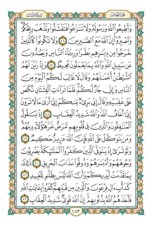 وَأَطِيعُوا۟ ٱللَّهَ وَرَسُولَهُۥ وَلَا تَنَٰزَعُوا۟ فَتَفْشَلُوا۟ وَتَذْهَبَ رِيحُكُمْ
وَٱصْبِرُوٓا۟ إِنَّ ٱللَّهَ مَعَ ٱلصَّٰبِرِينَ ٤٦ وَلَا تَكُونُوا۟ كَٱلَّذِينَ
خَرَجُوا۟ مِن دِيَٰرِهِم بَطَرًا وَرِئَآءَ ٱلنَّاسِ وَيَصُدُّونَ
عَن سَبِيلِ ٱللَّهِ وَٱللَّهُ بِمَا يَعْمَلُونَ مُحِيطٌ ٤٧ وَإِذْ زَيَّنَ لَهُمُ
ٱلشَّيْطَٰنُ أَعْمَٰلَهُمْ وَقَالَ لَا غَالِبَ لَكُمُ ٱلْيَوْمَ مِنَ
ٱلنَّاسِ وَإِنِّى جَارٌ لَّكُمْ فَلَمَّا تَرَآءَتِ ٱلْفِئَتَانِ نَكَصَ
عَلَىٰ عَقِبَيْهِ وَقَالَ إِنِّى بَرِىٓءٌ مِّنكُمْ إِنِّىٓ أَرَىٰ مَا لَا تَرَوْنَ
إِنِّىٓ أَخَافُ ٱللَّهَ وَٱللَّهُ شَدِيدُ ٱلْعِقَابِ ٤٨ إِذْ يَقُولُ
ٱلْمُنَٰفِقُونَ وَٱلَّذِينَ فِى قُلُوبِهِم مَّرَضٌ غَرَّ هَٰٓؤُلَآءِ دِينُهُمْ
وَمَن يَتَوَكَّلْ عَلَى ٱللَّهِ فَإِنَّ ٱللَّهَ عَزِيزٌ حَكِيمٌ ٤٩
وَلَوْ تَرَىٰٓ إِذْ يَتَوَفَّى ٱلَّذِينَ كَفَرُوا۟ ٱلْمَلَٰٓئِكَةُ يَضْرِبُونَ
وُجُوهَهُمْ وَأَدْبَٰرَهُمْ وَذُوقُوا۟ عَذَابَ ٱلْحَرِيقِ ٥٠
ذَٰلِكَ بِمَا قَدَّمَتْ أَيْدِيكُمْ وَأَنَّ ٱللَّهَ لَيْسَ بِظَلَّٰمٍ لِّلْعَبِيدِ ٥١
كَدَأْبِ ءَالِ فِرْعَوْنَ وَٱلَّذِينَ مِن قَبْلِهِمْ كَفَرُوا۟ بِـَٔايَٰتِ
ٱللَّهِ فَأَخَذَهُمُ ٱللَّهُ بِذُنُوبِهِمْ إِنَّ ٱللَّهَ قَوِىٌّ شَدِيدُ ٱلْعِقَابِ ٥٢
١٨٣